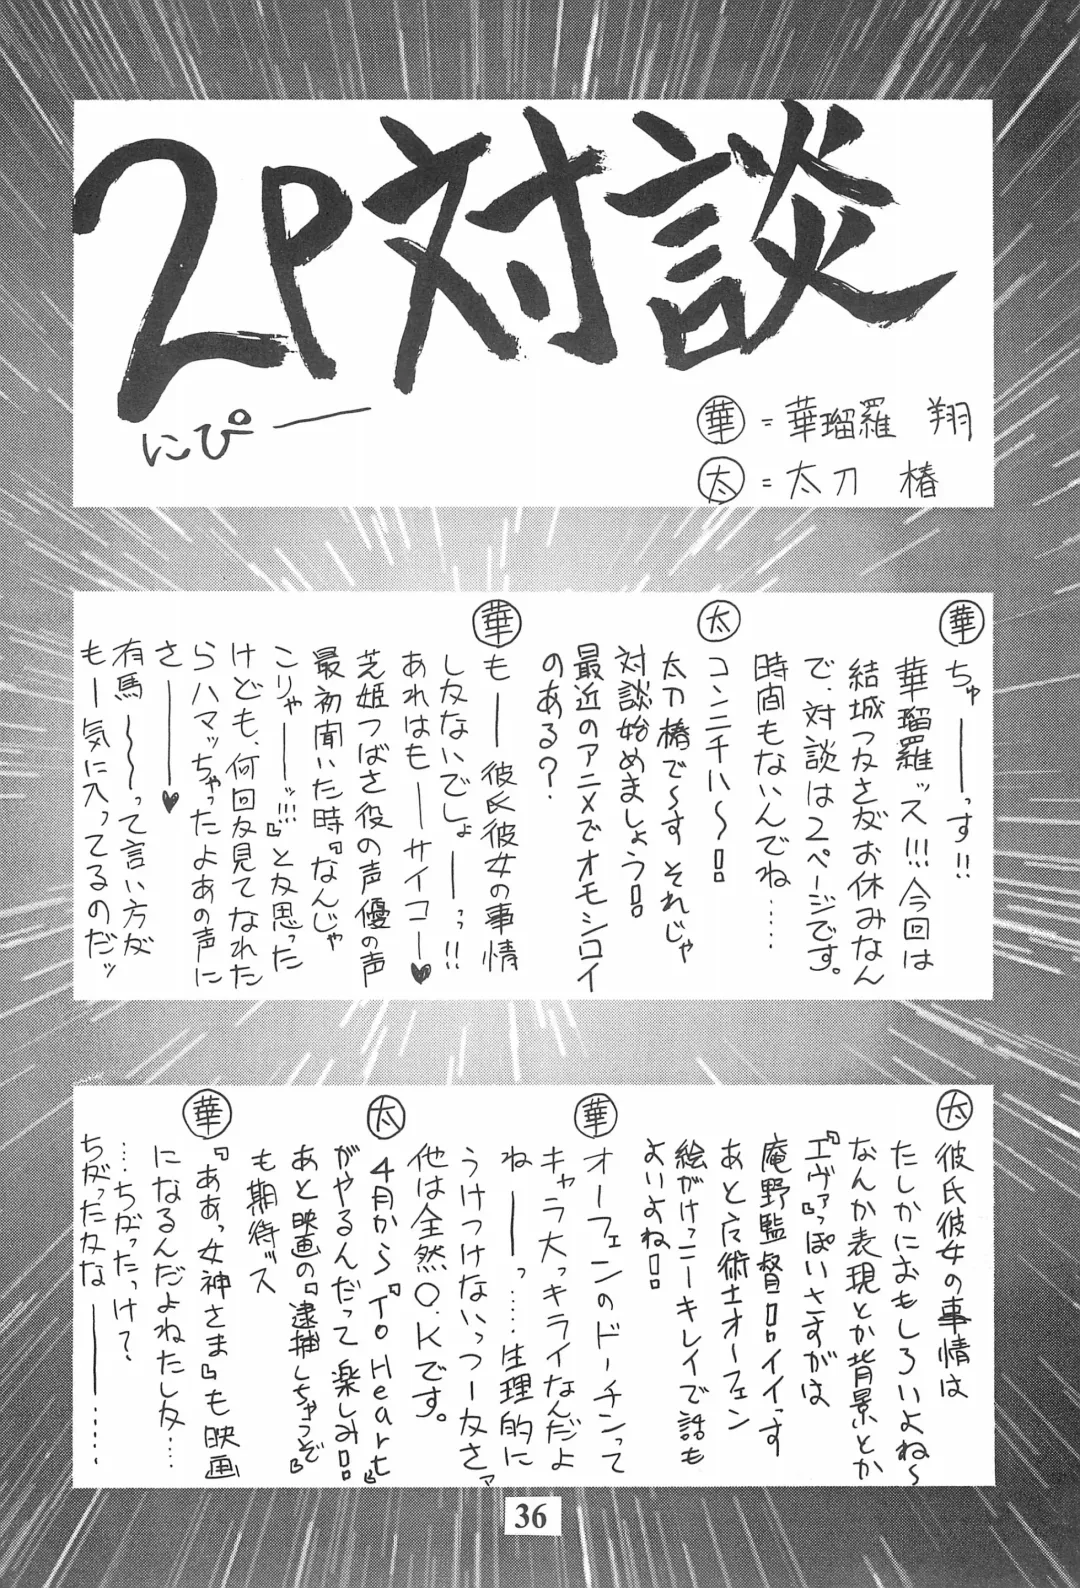 2P対談
にぴー
華=華瑠羅 翔
太=太刀 椿
華
ちゅーーっす!!
華瑠羅ッス!!!今回は
結城つかさがお休みなん
で、対談は2ページです。
時間もないんでね……
太
コンニチハ〜!!
太刀椿で〜す それじゃ
対談始めましょう!!
最近のアニメでオモシロイ
のある?
華
もーー 彼氏彼女の事情
しかないでしょーーっ!!
あれはもーーサイコー♥
芝姫つばさ役の声優の声
最初聞いた時『なんじゃ
こりゃーーッ!!!』と思った
けども、何回か見てなれた
らハマッちゃったよあの声に
さーーー♥
有馬〜〜〜って言い方が
もー気に入ってるのだッ
太
彼氏彼女の事情は
たしかにおもしろいよね〜
なんか表現とか背景とか
『エヴァ』っぽいさすがは
庵野監督!!イイっす
あと魔術士オーフェン
絵がけっこーキレイで話も
よいよね!!
華
オーフェンのドーチンって
キャラ大っキライなんだよ
ねーーっ……生理的に
うけつけないっつーかさァ
他は全然O.Kです。
太
4月から『To Heart』
がやるんだって 楽しみ!!
あと映画の『逮捕しちゃうぞ』
も期待ッス
華
『ああっ女神さま』も映画
になるんだよねたしか…
…ちがったっけ?
ちがったかなーーー……
36